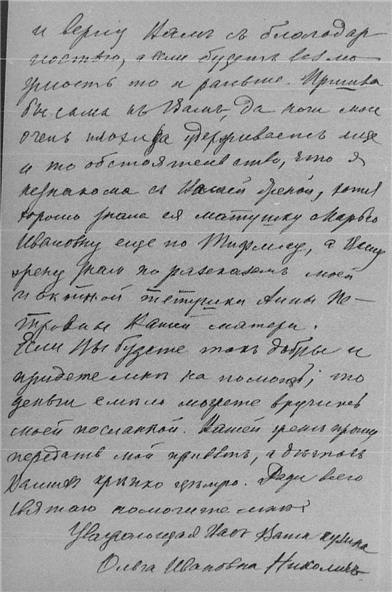 и верну Вамъ съ благодар
ностью, а если будетъ возмо
жность то и раньше. Пришла
бы сама къ Вамъ, да ноги мои
очень плохи, да удерживаетъ еще
и то обстоятельство, что я
незнакома съ Вашей женой, хотя
хорошо знала ея матушку Марью
Ивановну еще по Тифлису, а Вашу
жену знаю по разсказамъ моей
покойной тетушки Анны Пе-
тровны Вашей матери.
Если Вы будете такъ добры и
придете мнѣ на помощь, то
деньги смѣло можете вручить
моей посланной. Вашей женѣ прошу
передать мой привѣтъ, а дѣтокъ
Вашихъ крѣпко цѣлую. Ради всего
святаго помогите мнѣ
Уважающая Васъ Ваша кузина
Ольга Ивановна Николаичъ